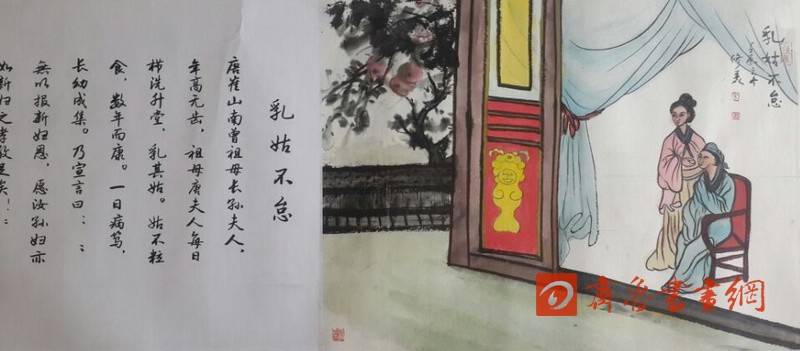 乳姑不怠
唐崔山南曾祖母长孙夫人，
年高无齿，祖母唐夫人每日
栉洗升堂，乳其姑。姑不粒
食，数年而康。一日病笃，
长幼咸集。乃宣言曰：：
無以报新妇恩，愿汝孙妇亦
如新妇之孝敬足矣！：
乳姑不怠
齊魯書畫網